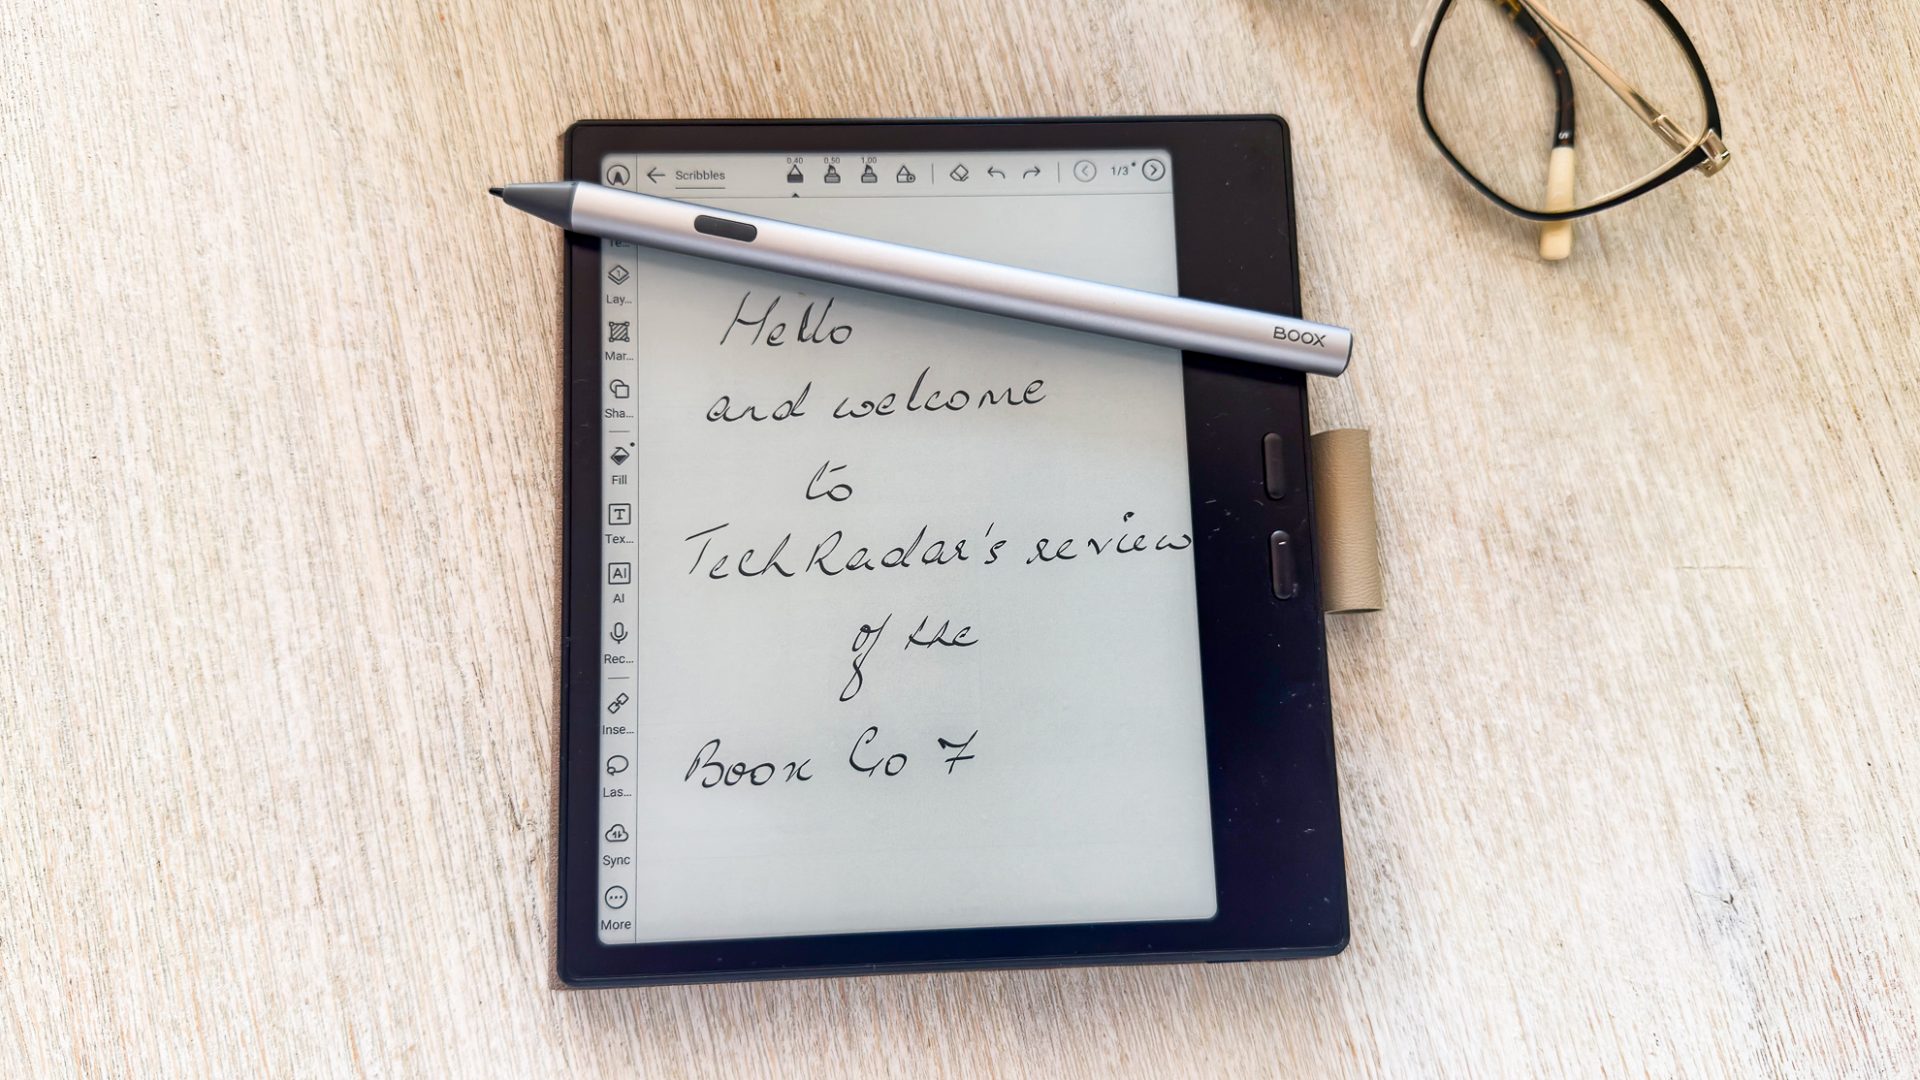 0.40 0.50 1.00
Scribbles 1/3
Te...
Lay...
BOOX
Mar...
Sha...
Fill
Tex...
AI
AI
Rec...
Inse...
Las...
Sync
More
Hello
and welcome
to
TechRadar's review
of the
Boox Go 7